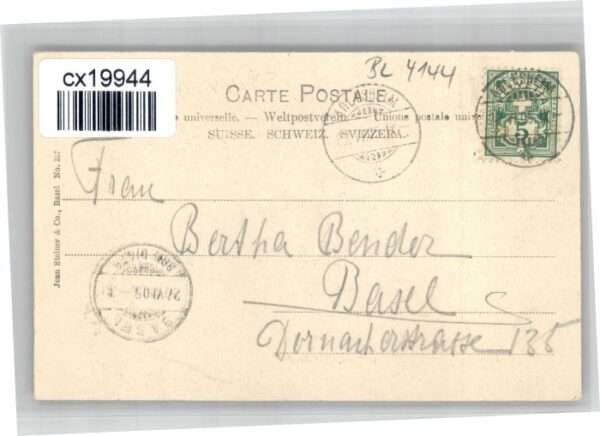 cx19944
BL 4144
CARTE POSTALE
universelle. — Weltpostverein. — Unione postale
SUISSE. SCHWEIZ. SVIZZERA.
5
Jean Stelner & Co., Basel No. 257
Frau
Bertha Bender
Basel
Dornacherstrasse 135
BASEL
27.VI.05